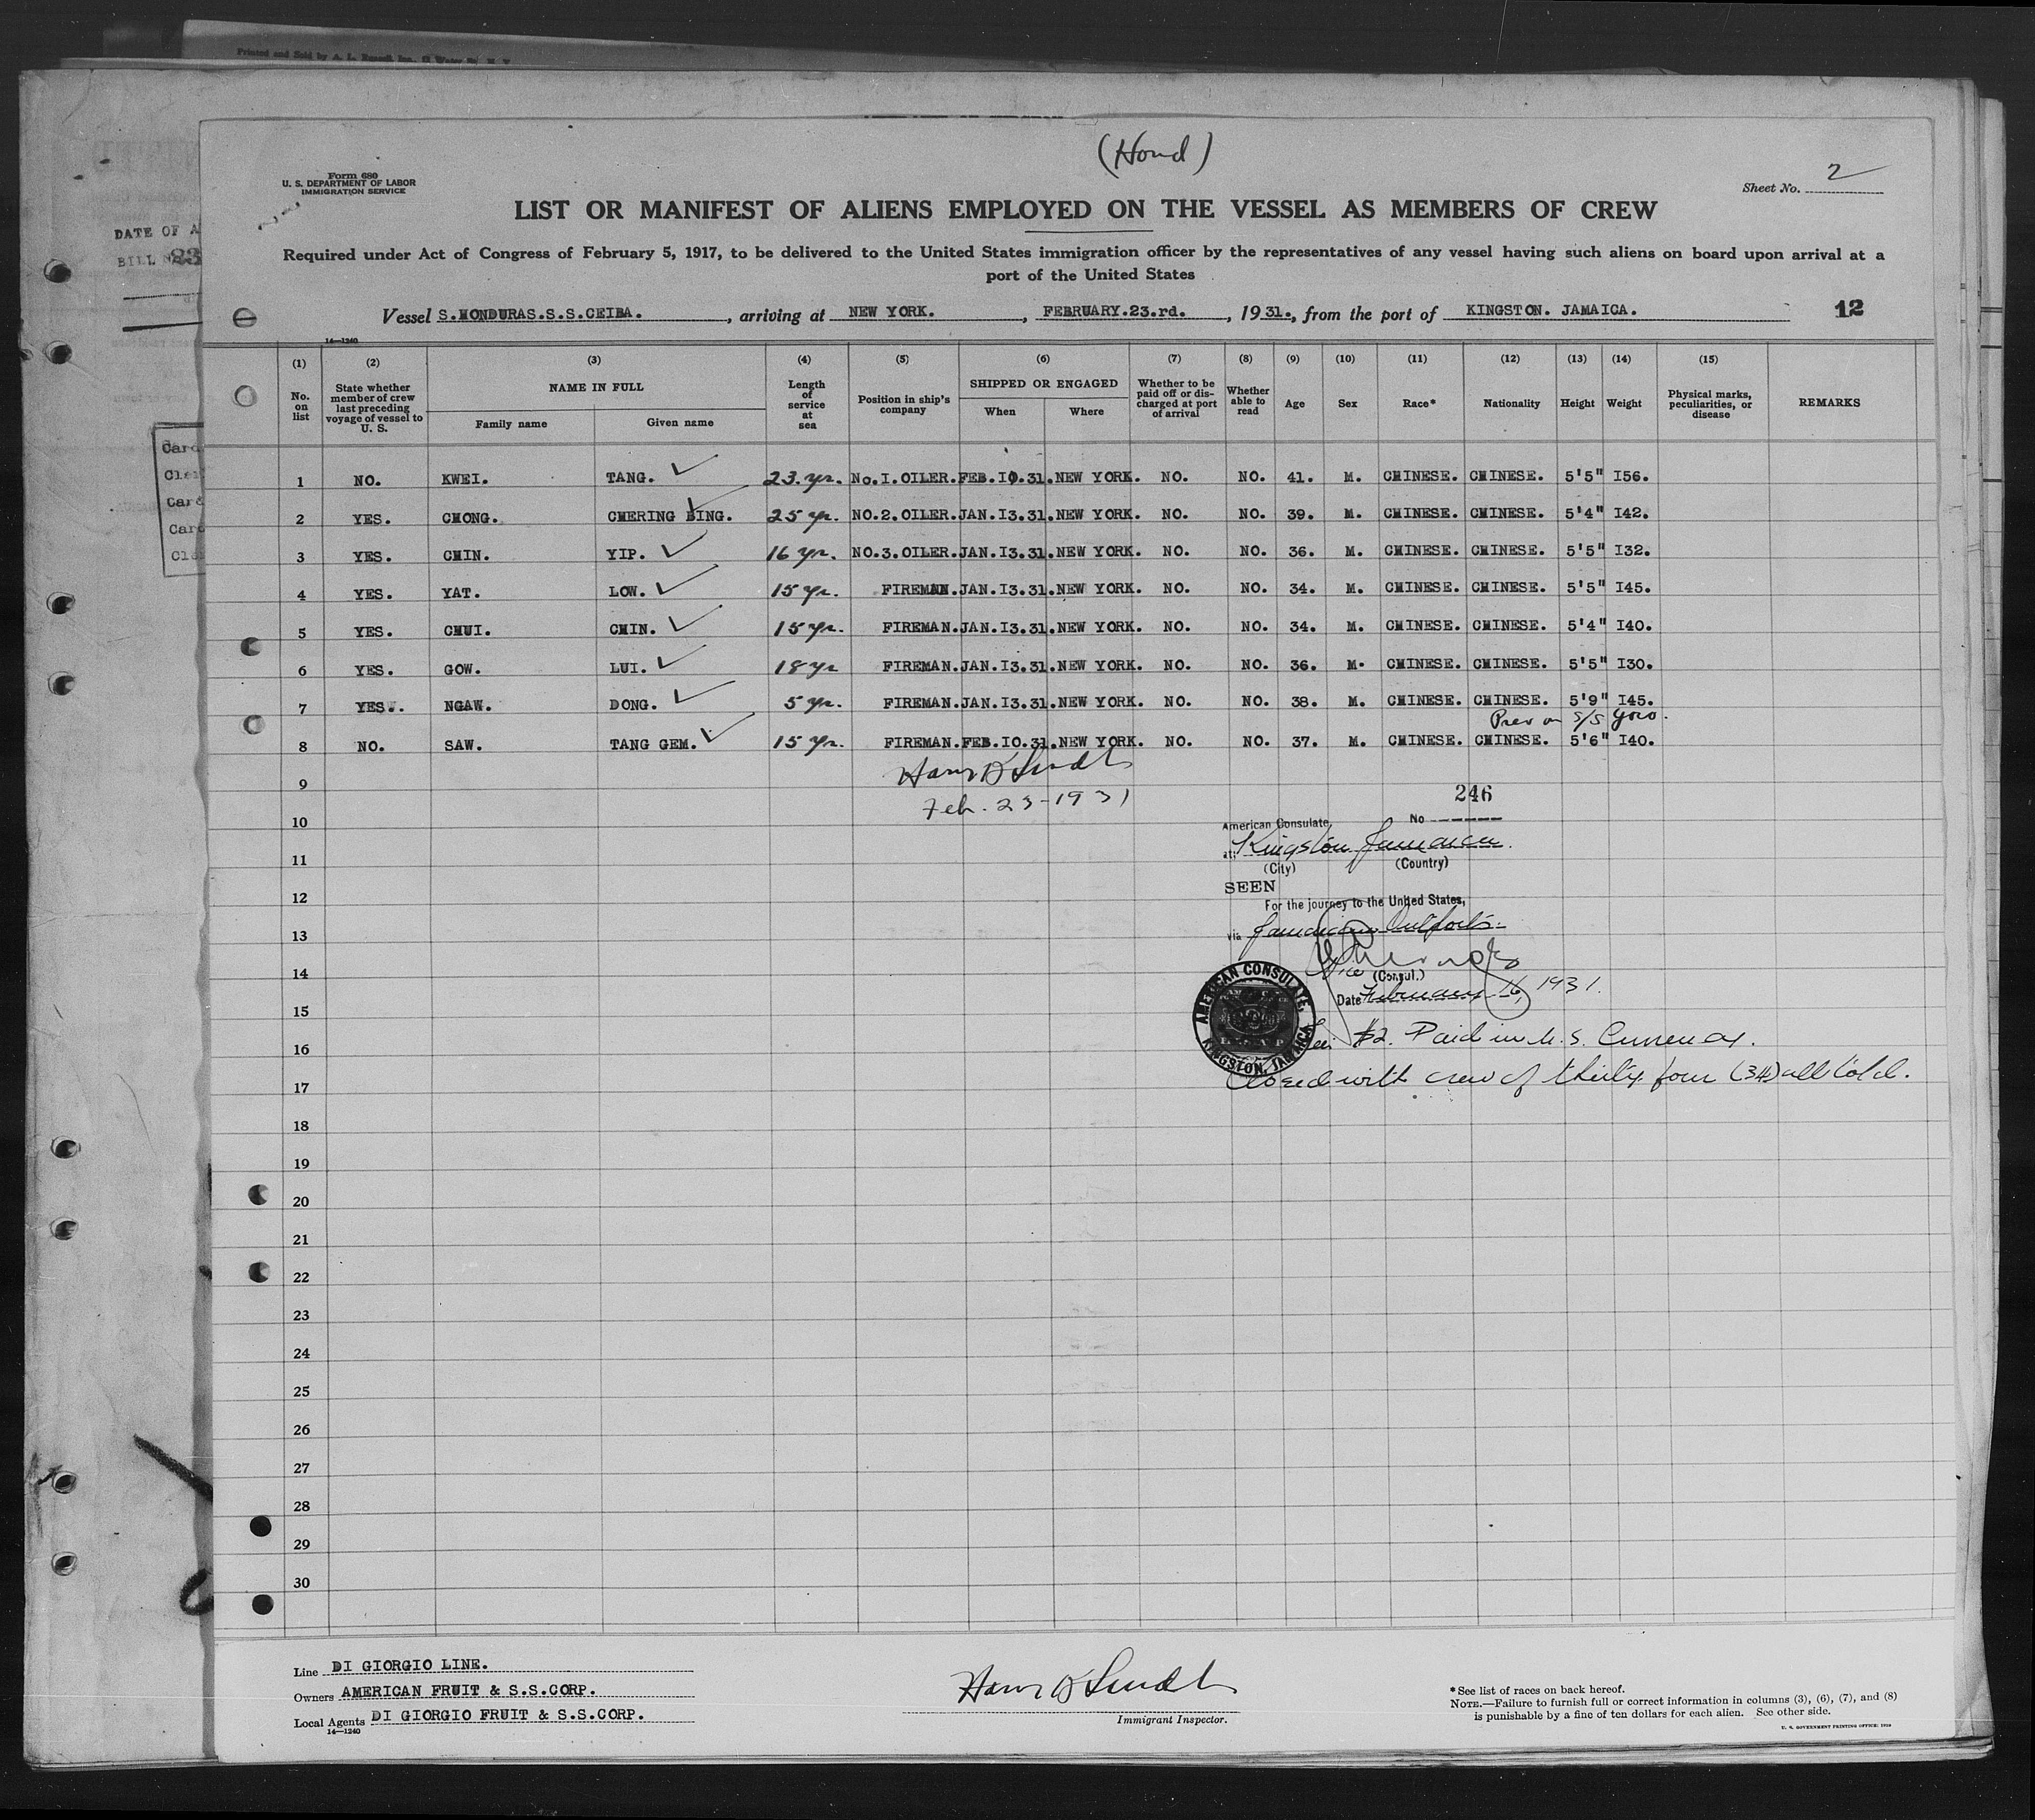 Printed and Sold by A. L. Russell Inc.
(Hond)
Form 680
U. S. DEPARTMENT OF LABOR
IMMIGRATION SERVICE
Sheet No. 2
LIST OR MANIFEST OF ALIENS EMPLOYED ON THE VESSEL AS MEMBERS OF CREW
Required under Act of Congress of February 5, 1917, to be delivered to the United States immigration officer by the representatives of any vessel having such aliens on board upon arrival at a
port of the United States
DATE OF A
BILL
23
Vessel S.HONDURAS.S.S.CEIBA., arriving at NEW YORK., FEBRUARY.23.rd., 1931., from the port of KINGSTON. JAMAICA.
12
14—1240
(1) (2) (3) (4) (5) (6) (7) (8) (9) (10) (11) (12) (13) (14) (15)
No. on list
State whether member of crew last preceding voyage of vessel to U. S.
NAME IN FULL
Family name Given name
Length of service at sea
Position in ship's company
SHIPPED OR ENGAGED
When Where
Whether to be paid off or discharged at port of arrival
Whether able to read
Age
Sex
Race*
Nationality
Height
Weight
Physical marks, peculiarities, or disease
REMARKS
1 NO. KWEI. TANG. ✓ 23. yr. No.I.OILER. FEB.I0.31. NEW YORK. NO. NO. 41. M. CHINESE. CHINESE. 5'5" I56.
2 YES. CHONG. CHERING BING. ✓ 25 yr. NO.2.OILER. JAN.I3.31. NEW YORK. NO. NO. 39. M. CHINESE. CHINESE. 5'4" I42.
3 YES. CHIN. YIP. ✓ 16 yr. NO.3.OILER. JAN.I3.31. NEW YORK. NO. NO. 36. M. CHINESE. CHINESE. 5'5" I32.
4 YES. YAT. LOW. ✓ 15 yr. FIREMAN. JAN.I3.31. NEW YORK. NO. NO. 34. M. CHINESE. CHINESE. 5'5" I45.
5 YES. CHUI. CHIN. ✓ 15 yr. FIREMAN. JAN.I3.31. NEW YORK. NO. NO. 34. M. CHINESE. CHINESE. 5'4" I40.
6 YES. GOW. LUI. ✓ 18 yr FIREMAN. JAN.I3.31. NEW YORK. NO. NO. 36. M. CHINESE. CHINESE. 5'5" I30.
7 YES. NGAW. DONG. ✓ 5 yr. FIREMAN. JAN.I3.31. NEW YORK. NO. NO. 38. M. CHINESE. CHINESE. 5'9" I45.
Prev on S/S
8 NO. SAW. TANG GEM. ✓ 15 yr. FIREMAN. FEB.IO.31. NEW YORK. NO. NO. 37. M. CHINESE. CHINESE. 5'6" I40.
9
Feb. 23-1931
246
10
American Consulate, No
11
at Kingston Jamaica.
(City) (Country)
SEEN
12
For the journey to the United States,
13
via Jamaican Outports
14
Vice (Consul.)
Date February 16, 1931.
15
AMERICAN CONSULATE, KINGSTON, JAMAICA
16
Fee $2. Paid in U. S. Currency.
17
Closed with crew of thirty four (34) all told.
18
19
20
21
22
23
24
25
26
27
28
29
30
Line DI GIORGIO LINE.
Owners AMERICAN FRUIT & S.S.CORP.
Local Agents DI GIORGIO FRUIT & S.S.CORP.
14—1240
Immigrant Inspector.
*See list of races on back hereof.
NOTE.—Failure to furnish full or correct information in columns (3), (6), (7), and (8)
is punishable by a fine of ten dollars for each alien. See other side.
U. S. GOVERNMENT PRINTING OFFICE: